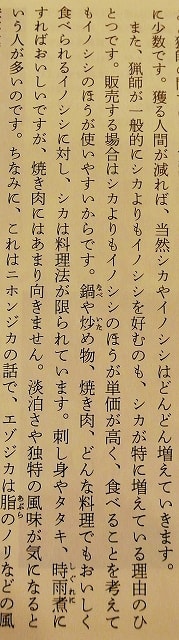 に少数です。獲る人間が減れば、当然シカやイノシシはどんどん増えていきます。
また、猟師が一般的にシカよりもイノシシを好むのも、シカが特に増えている理由のひ
とつです。販売する場合はシカよりもイノシシのほうが単価が高く、食べることを考えて
もイノシシのほうが使いやすいからです。鍋や炒め物、焼き肉、どんな料理でもおいしく
食べられるイノシシに対し、シカは料理法が限られています。刺し身やタタキ、時雨煮に
すればおいしいですが、焼き肉にはあまり向きません。淡泊さや独特の風味が気になると
いう人が多いのです。ちなみに、これはニホンジカの話で、エゾジカは脂のノリなどの風